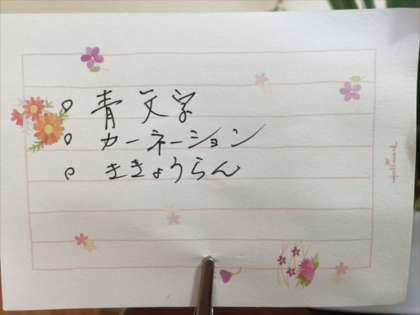 青文字
カーネーション
ききょうらん
Hallmark